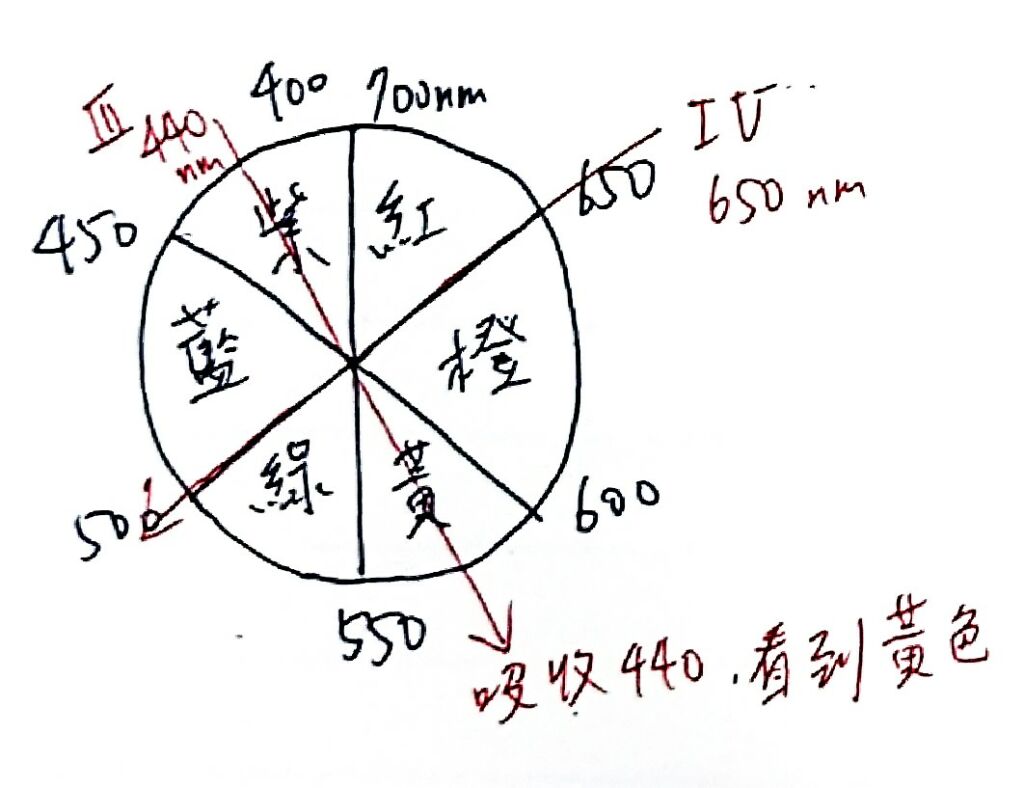 400 700nm
III 440
nm
IV
650
650 nm
450
紫 紅
藍 橙
綠 黃
500
600
550
吸收440.看到黃色